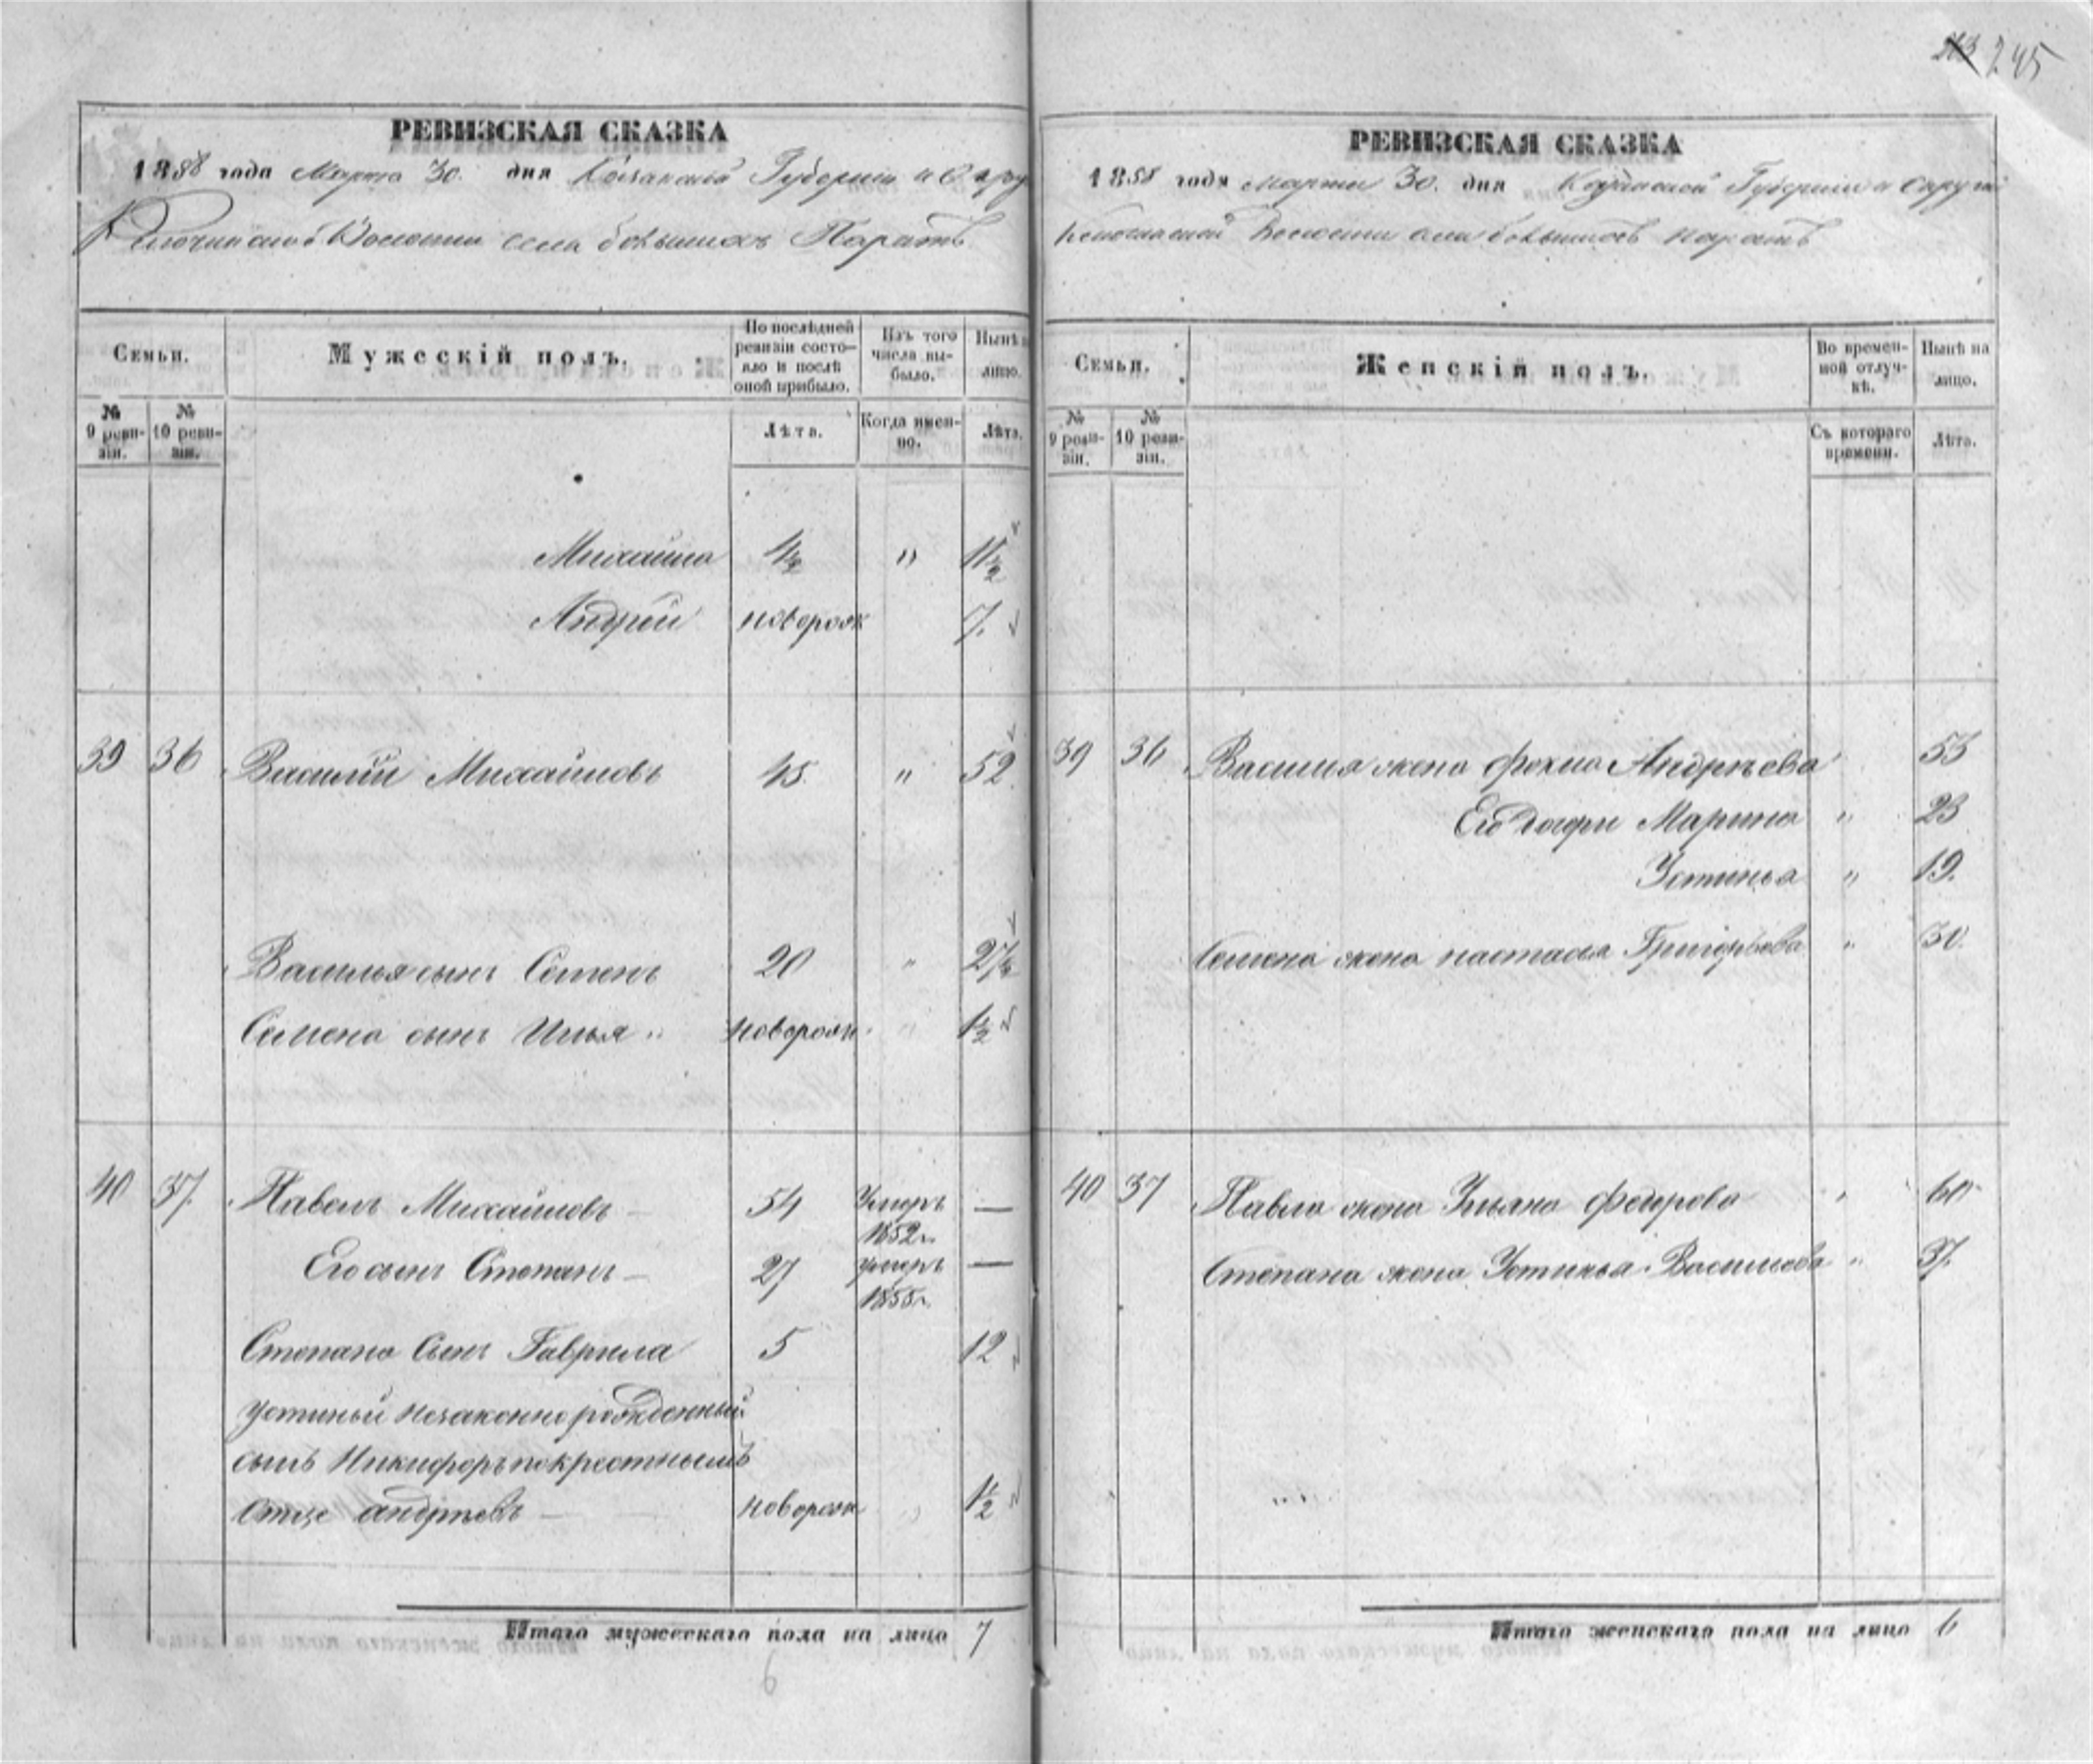 245
РЕВИЗСКАЯ СКАЗКА
1858 года Марта 30. дня Казанской Губернии и Окру
Ключинской Волости села большихъ Паратъ
Семьи.
Мужескій полъ.
По послѣдней ревизіи состояло и послѣ оной прибыло.
Изъ того числа выбыло.
Нынѣ на лицо.
№ 9 ревизіи.
№ 10 ревизіи.
Лѣта.
Когда именно.
Лѣта.
Михайло 4½ " 11½
Андрей новорож 7.
39 36 Василій Михайловъ 45. " 52
Василья сынъ Семенъ 20 " 27½
Семена сынъ Илья " новорож. " 1½
40 37. Павелъ Михайловъ — 54 Умеръ 1852г. —
Его сынъ Степанъ — 27 умеръ 1855г. —
Степана Сынъ Гаврила 5 12
Устиньи незаконнорожденный
сынъ Никифоръ по крестнымъ
Отце андреевъ — новорож " 1½
Итого мужескаго пола на лицо 7
6
РЕВИЗСКАЯ СКАЗКА
1858 года марта 30. дня Казанской Губернии и Округи
Волости села большихъ паратъ
Семьи.
Женскій полъ.
Во временной отлучкѣ.
Нынѣ на лицо.
№ 9 ревизіи.
№ 10 ревизіи.
Съ котораго времени.
Лѣта.
39 36 Василия жена Фекла Андреева 53
Его дочери Марина " 23
Устинья " 19.
Семена жена настасья Григорьева " 30.
40 37 Павла жена Ульяна Федорова " 60
Степана жена Устинья Васильева " 37.
Итого женскаго пола на лицо 6